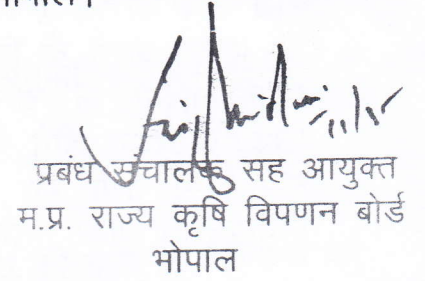 प्रबंध संचालक सह आयुक्त
म.प्र. राज्य कृषि विपणन बोर्ड
भोपाल